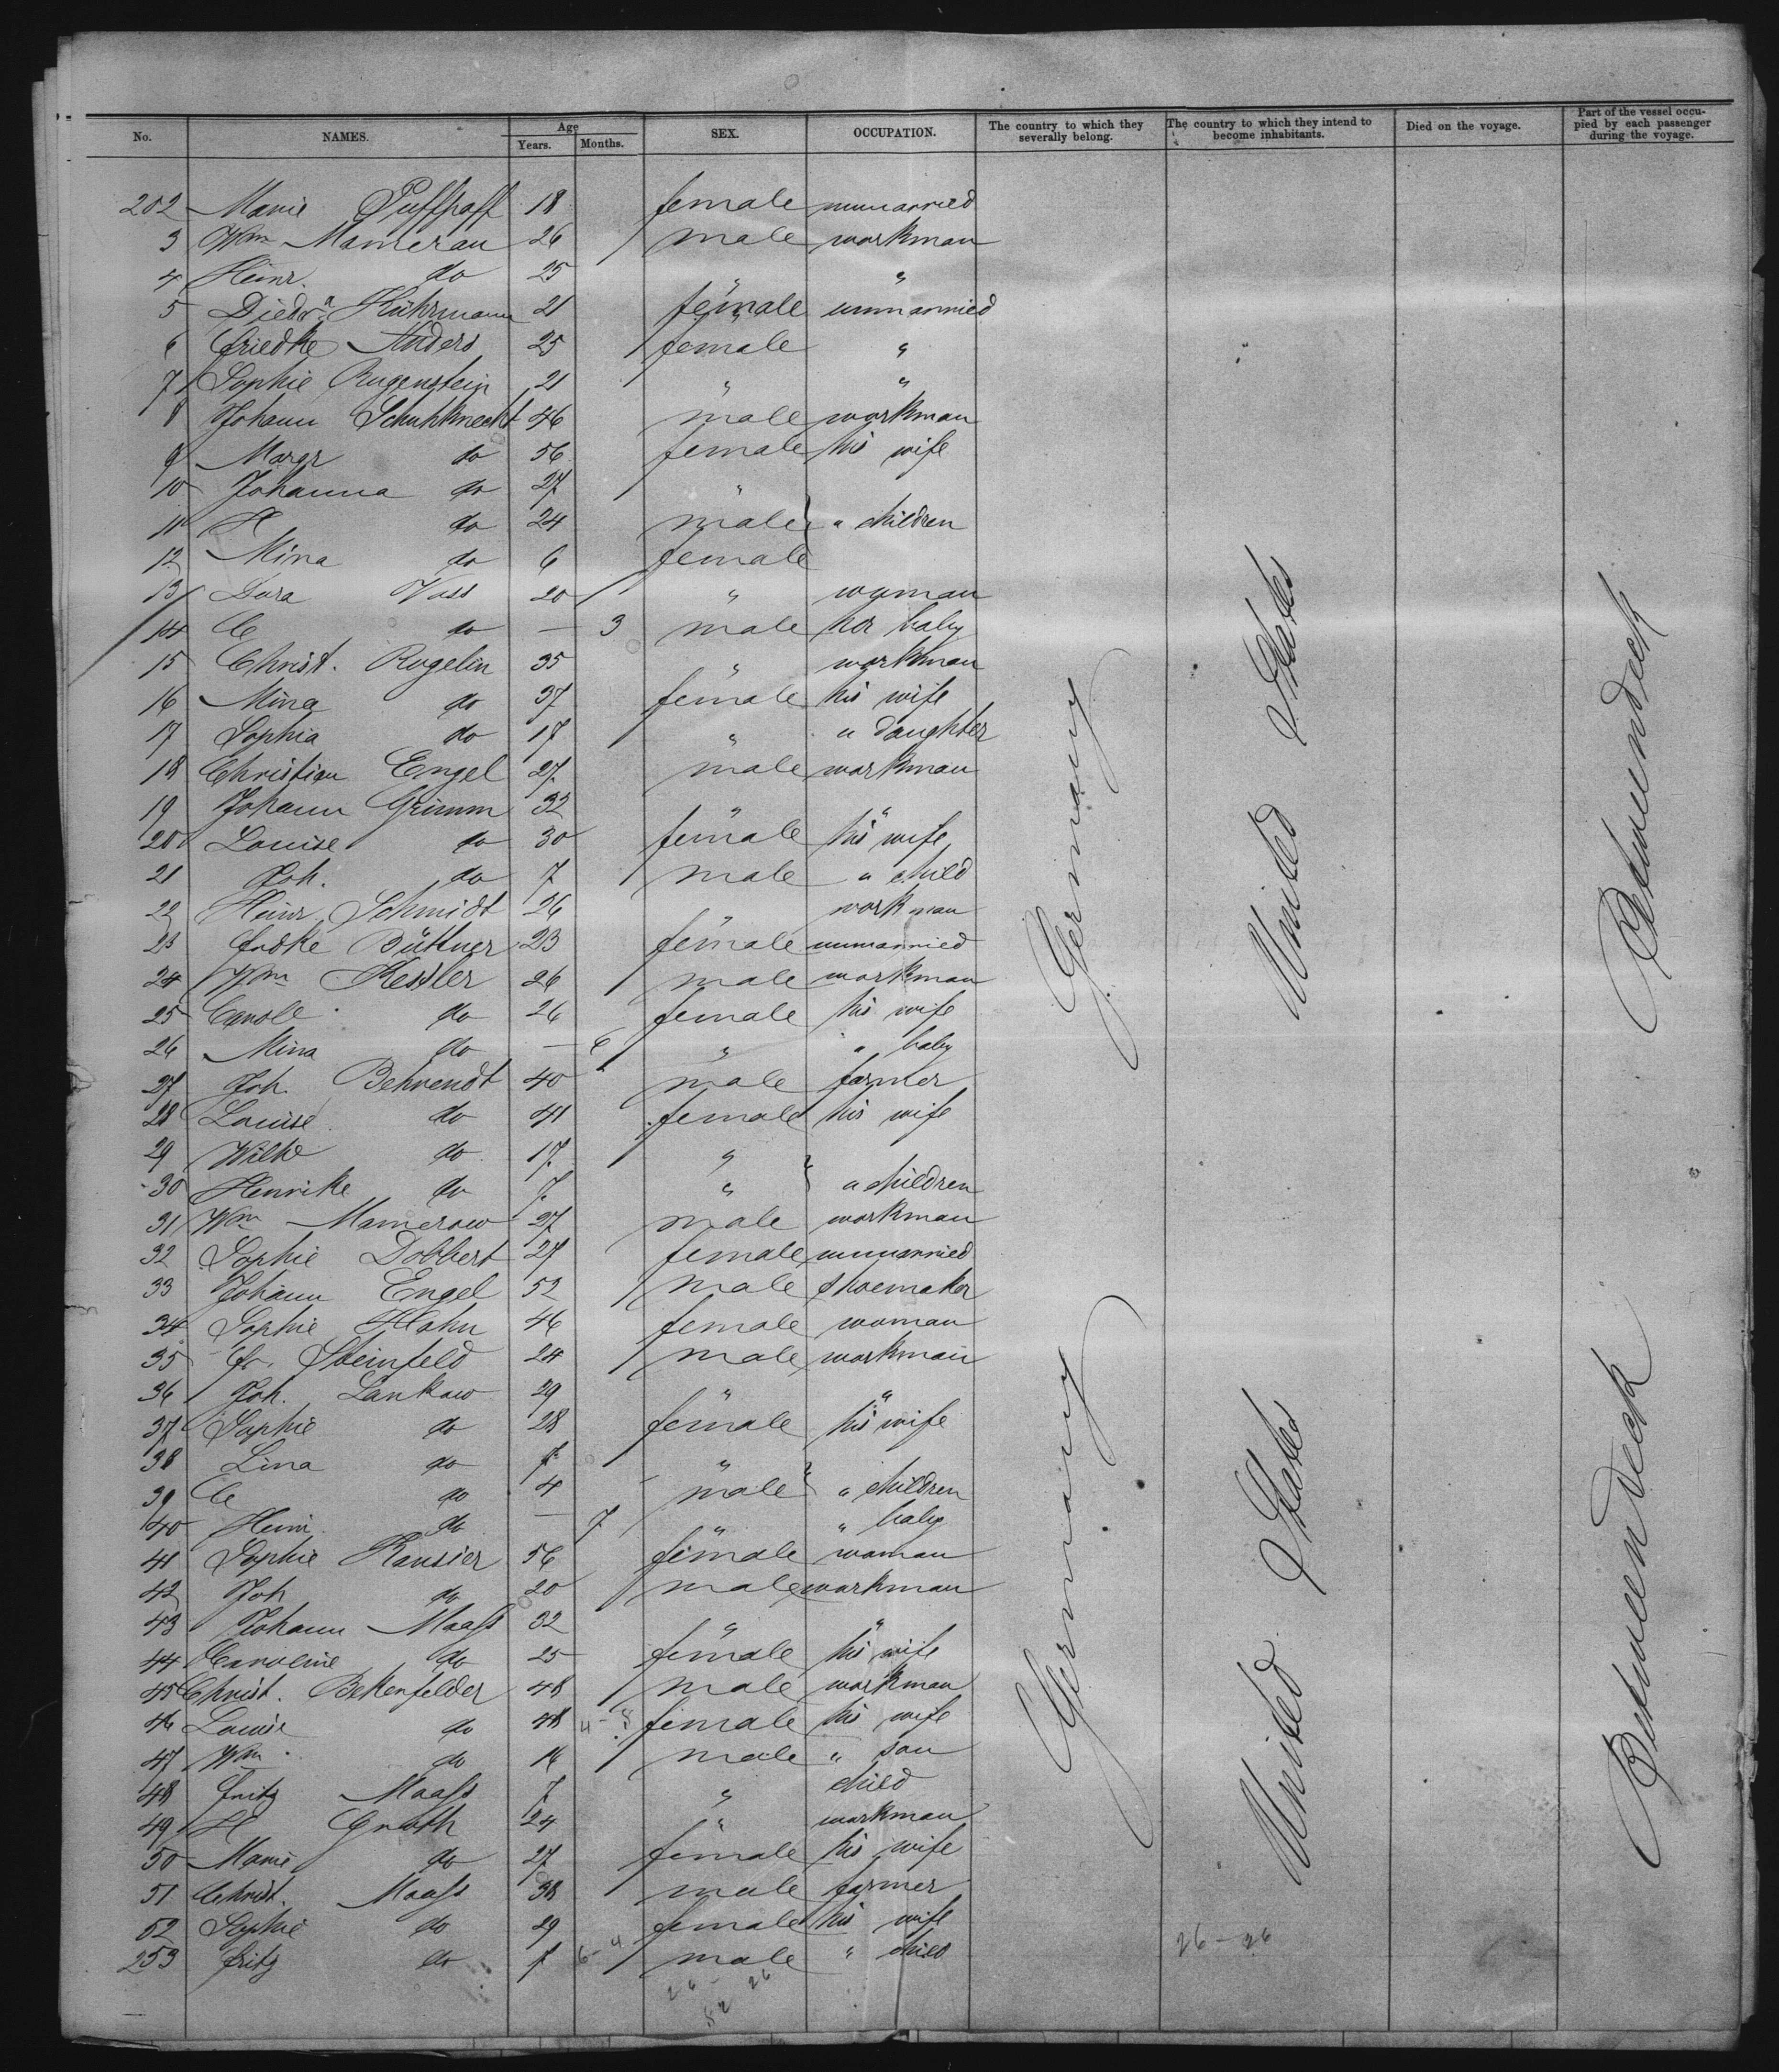 No. NAMES. Age Years. Months. SEX. OCCUPATION. The country to which they severally belong. The country to which they intend to become inhabitants. Died on the voyage. Part of the vessel occupied by each passenger during the voyage.
202 Marie Puffpaff 18 female unmarried
3 Wm Mamerau 26 male workman
4 Heinr. do 25 " "
5 Diedra Kührmann 21 female unmarried
6 Friedke Anders 25 female "
7 Sophie Rugenstein 21 " "
8 Johann Schuhknecht 46 male workman
9 Margr do 56 female his wife
10 Johanna do 27 "
11 H do 24 male " children
12 Mina do 6 female
13 Dora Voss 20 " woman
14 C do — 3 male her baby
15 Christ. Rogelin 35 " workman
16 Mina do 37 female his wife
17 Sophia do 17 " " daughter
18 Christian Engel 27 male workman
19 Johann Grimm 32 " "
20 Louise do 30 female his wife
21 Joh. do 7 male " child
22 Heinr. Schmidt 26 " workman
23 Fredke Büttner 23 female unmarried
24 Wm Kessler 26 male workman
25 Carole do 26 female his wife
26 Mina do — 6 " " baby
27 Joh. Behrendt 40 male farmer
28 Louise do 41 female his wife
29 Wilke do 17 "
30 Henrike do 7 " " children
31 Wm Mamerow 27 male workman
32 Sophie Dobbert 27 female unmarried
33 Johann Engel 52 male shoemaker
34 Sophie Hahn 46 female woman
35 Fr. Steinfeld 24 male workman
36 Joh. Lankow 29 " "
37 Sophie do 28 female his wife
38 Lina do 7 "
39 C do 4 male " children
40 Heinr. do — 7 " " baby
41 Sophie Ransier 56 female woman
42 Joh do 20 male workman
43 Johann Maass 32 " "
44 Caroline do 25 female his wife
45 Christ. Bekenfelder 48 male workman
46 Louise do 48 female his wife
47 Wm do 16 male " son
48 Fritz Maass 7 " child
49 H Groth 24 " workman
50 Marie do 27 female his wife
51 Christ. Maass 38 male farmer
52 Sophie do 29 female his wife
253 Fritz do 7 6-4 male " child
Germany
Germany
United States
United States
Betweendeck
Betweendeck
26-26
26-26
52